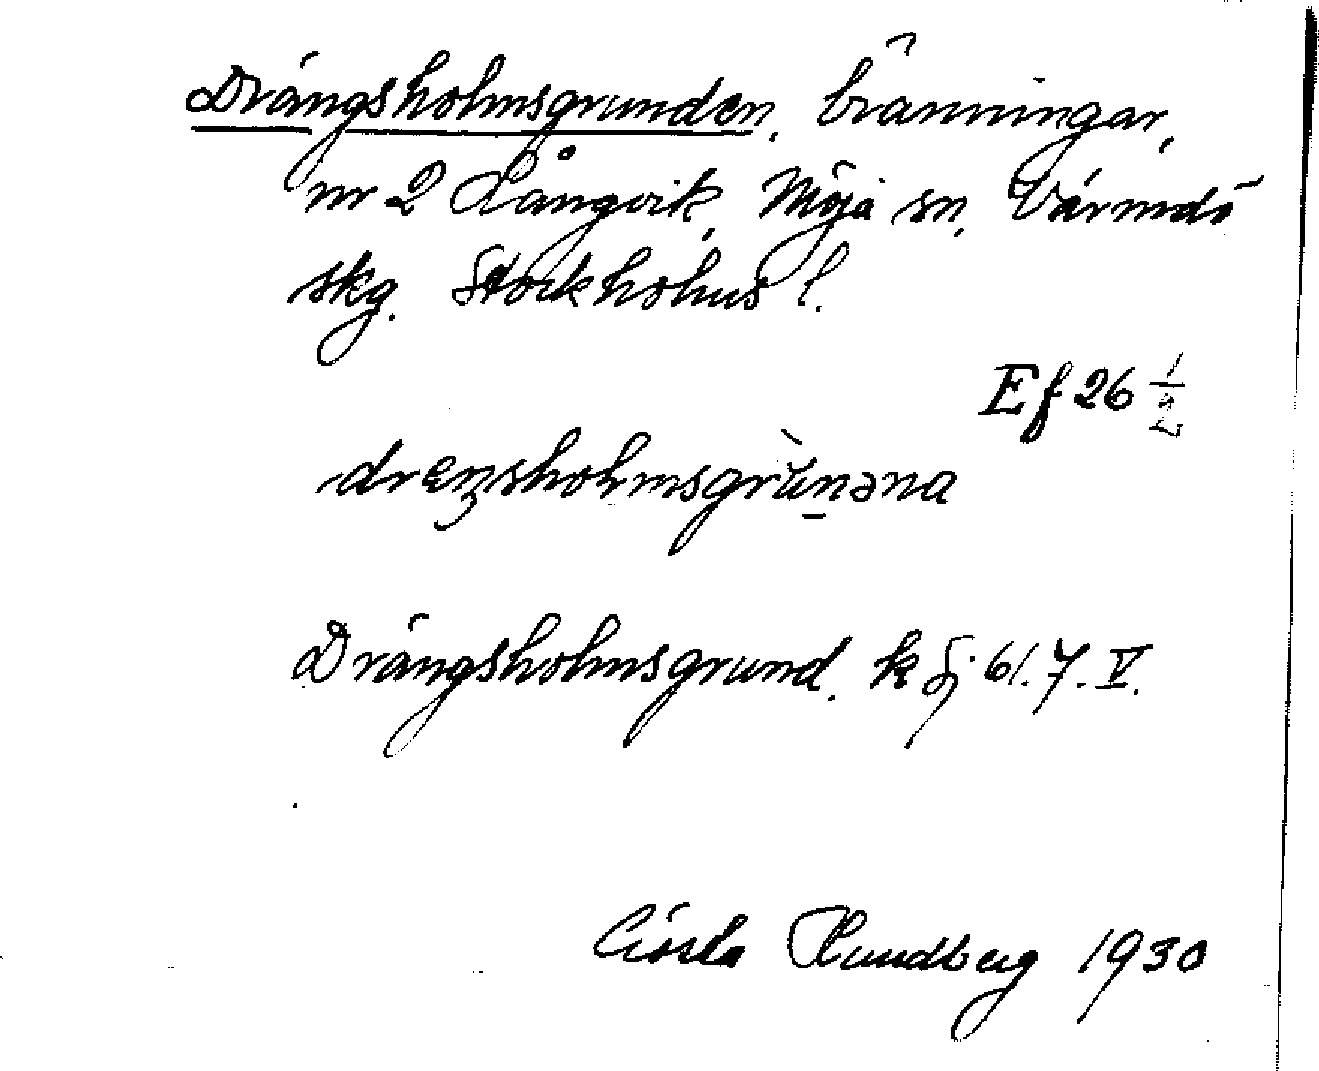 Drängsholmsgrunden, bränningar,
nr 2 Långvik, Möja sn, Värmdö
skg. Stockholms l.
Ef 26 1/a2
dreŋsholmsgrùn̠əna
Drängsholmsgrund. k 61.7.V.
Gösta Lundberg 1930